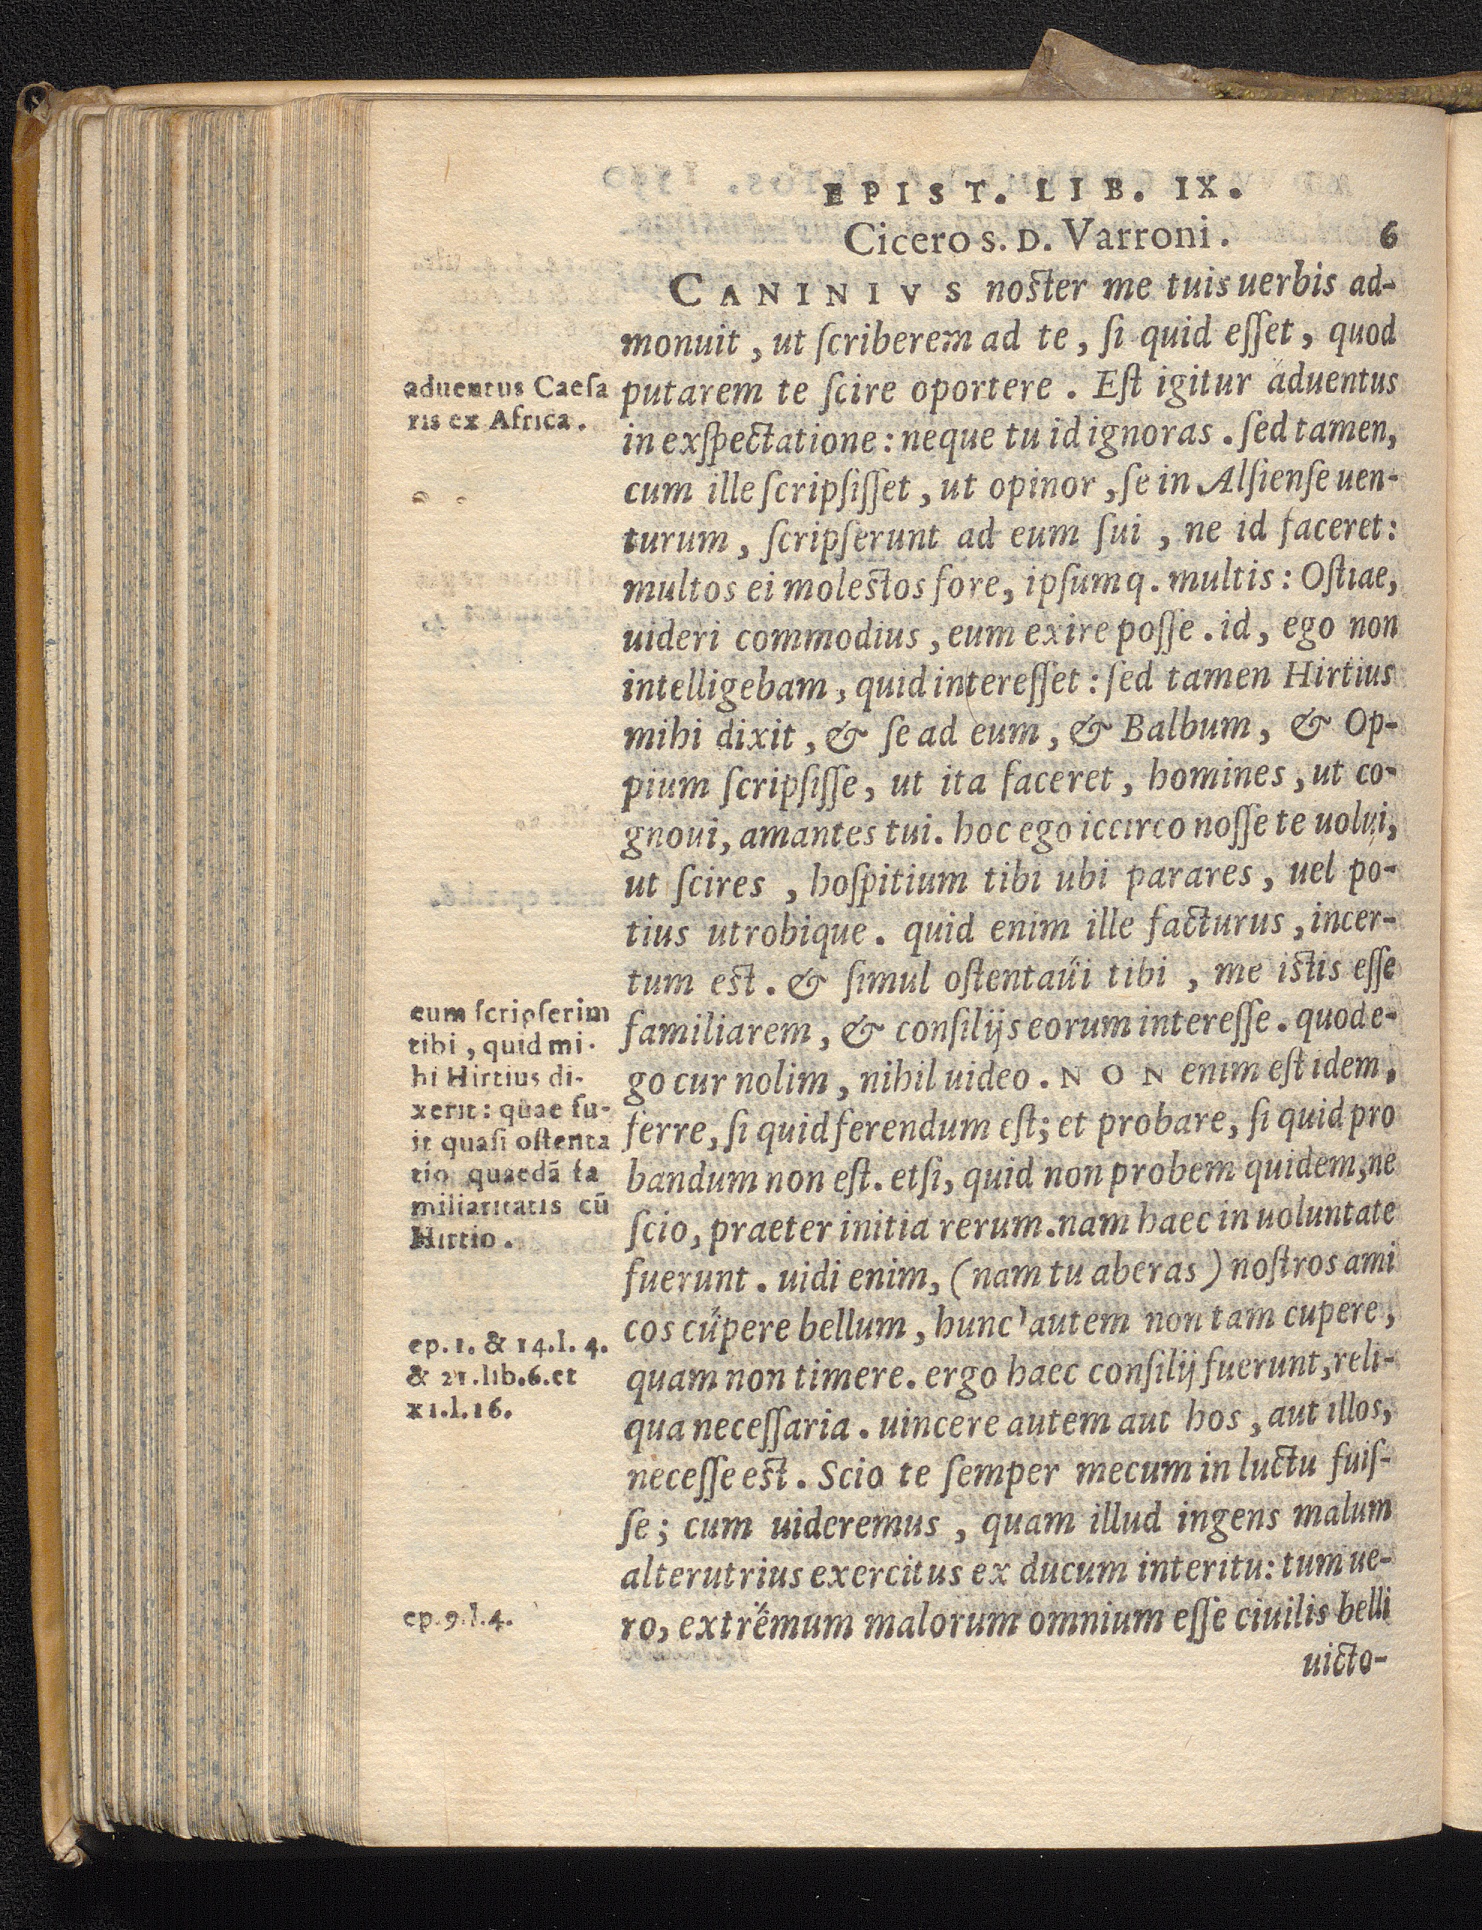 EPIST. LIB. IX.
Cicero s. D. Varroni. 6
CANINIVS noster me tuis uerbis ad-
monuit, ut ſcriberem ad te, ſi quid eſſet, quod
putarem te ſcire oportere. Eſt igitur aduentus
in exſpectatione: neque tu id ignoras. ſed tamen,
cum ille ſcripſiſſet, ut opinor, ſe in Alſienſe uen-
turum, ſcripſerunt ad eum ſui, ne id faceret:
multos ei molestos fore, ipſumq. multis: Oſtiae,
uideri commodius, eum exire poſſe. id, ego non
intelligebam, quid intereſſet: ſed tamen Hirtius
mihi dixit, & ſe ad eum, & Balbum, & Op-
pium ſcripſiſſe, ut ita faceret, homines, ut co-
gnoui, amantes tui. hoc ego iccirco noſſe te uolui,
ut ſcires, hoſpitium tibi ubi parares, uel po-
tius utrobique. quid enim ille facturus, incer-
tum est. & ſimul oſtentaui tibi, me istis eſſe
familiarem, & conſilijs eorum intereſſe. quod e-
go cur nolim, nihil uideo. NON enim eſt idem,
ferre, ſi quid ferendum eſt; et probare, ſi quid pro
bandum non eſt. etſi, quid non probem quidem, ne
ſcio, praeter initia rerum. nam haec in uoluntate
fuerunt. uidi enim, (nam tu aberas) noſtros ami
cos cupere bellum, hunc autem non tam cupere,
quam non timere. ergo haec conſilij fuerunt, reli-
qua neceſſaria. uincere autem aut hos, aut illos,
neceſſe est. Scio te ſemper mecum in luctu fuiſ-
ſe; cum uideremus, quam illud ingens malum
alterutrius exercitus ex ducum interitu: tum ue-
ro, extremum malorum omnium eſſe ciuilis belli
uicto-
aduentus Caeſa
ris ex Africa.
eum ſcripſerim
tibi, quid mi-
hi Hirtius di-
xerit: quae fu-
it quaſi oſtenta
tio quaedã fa
miliaritatis cũ
Hirtio.
ep. 1. & 14. l. 4.
& 21. lib. 6. et
x1. l. 16.
ep. 9. l. 4.